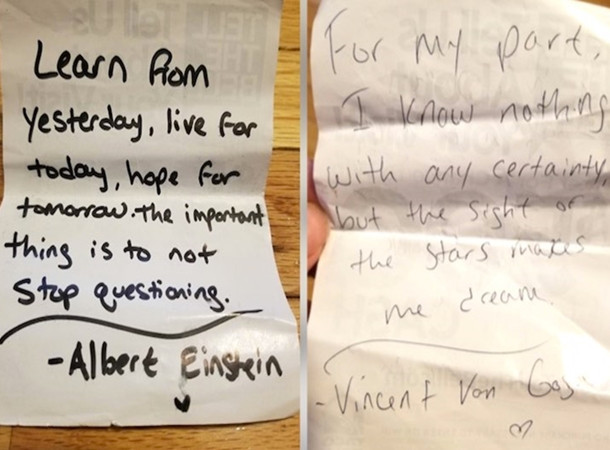 Learn from
yesterday, live for
today, hope for
tomorrow. The important
thing is to not
Stop questioning.
-Albert Einstein
For my part,
I know nothing
with any certainty,
but the sight of
the stars makes
me dream.
-Vincent Van